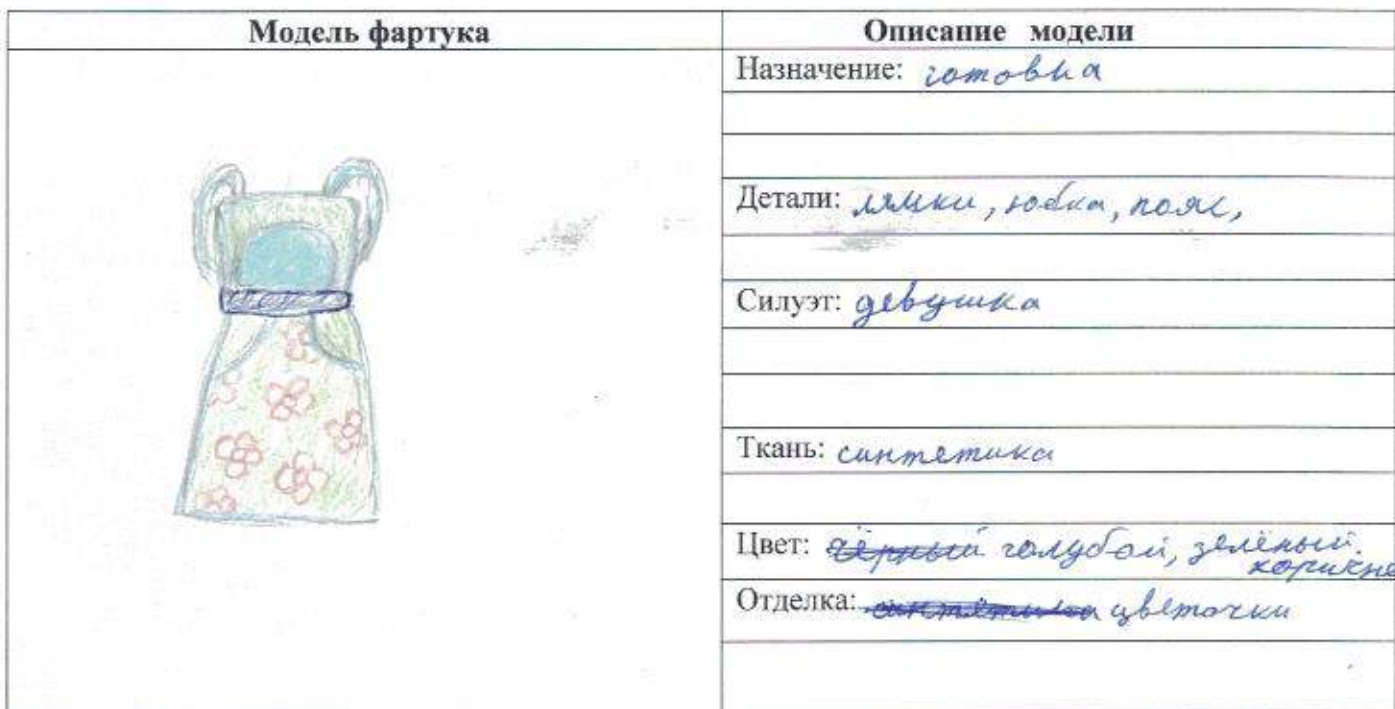 Модель фартука
Описание модели
Назначение: готовка
Детали: лямки, юбка, пояс,
Силуэт: девушка
Ткань: синтетика
Цвет: чёрный голубой, зелёный.
коричне
Отделка: синтетика цветочки